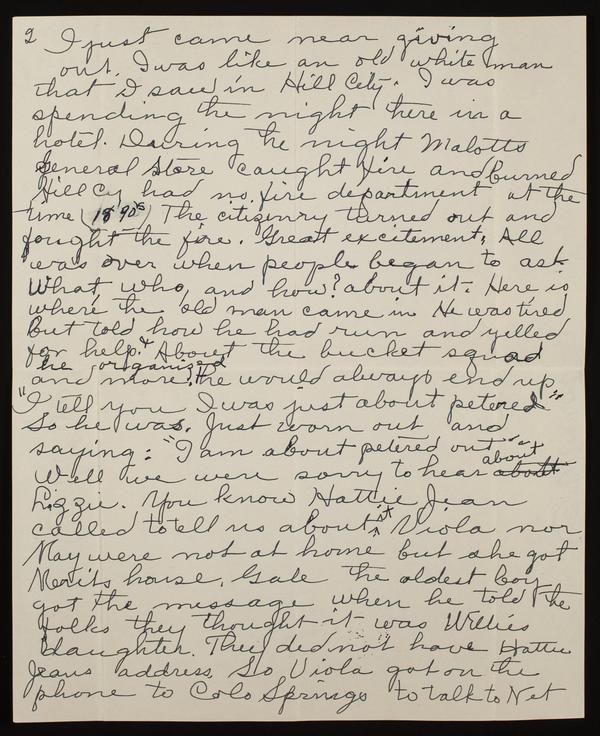 2 I just came near giving
out. I was like an old white man
that I saw in Hill City. I was
spending the night there in a
hotel. During the night Malotts
General Store caught fire and burned
Hill Cy had no fire department at the
time (1890s) The citizenry turned out and
fought the fire. Great excitement. All
was over when people began to ask
What who, and how? about it. Here is
where the old man came in He was tired
but told how he had run and yelled
for help. & About the bucket squad
he organized
and more. He would always end up
"I tell you I was just about petered"
So he was. Just worn out and
saying: "I am about petered out"
Well we were sorry to hear about about
Lizzie. You know Hattie Jean
called to tell us about it Viola nor
May were not at home but she got
Merits house. Gale the oldest boy
got the message when he told the
folks they thought it was Willies
daughter. They did not have Hattie
Jeans address. So Viola got on the
phone to Colo Springs to talk to Net